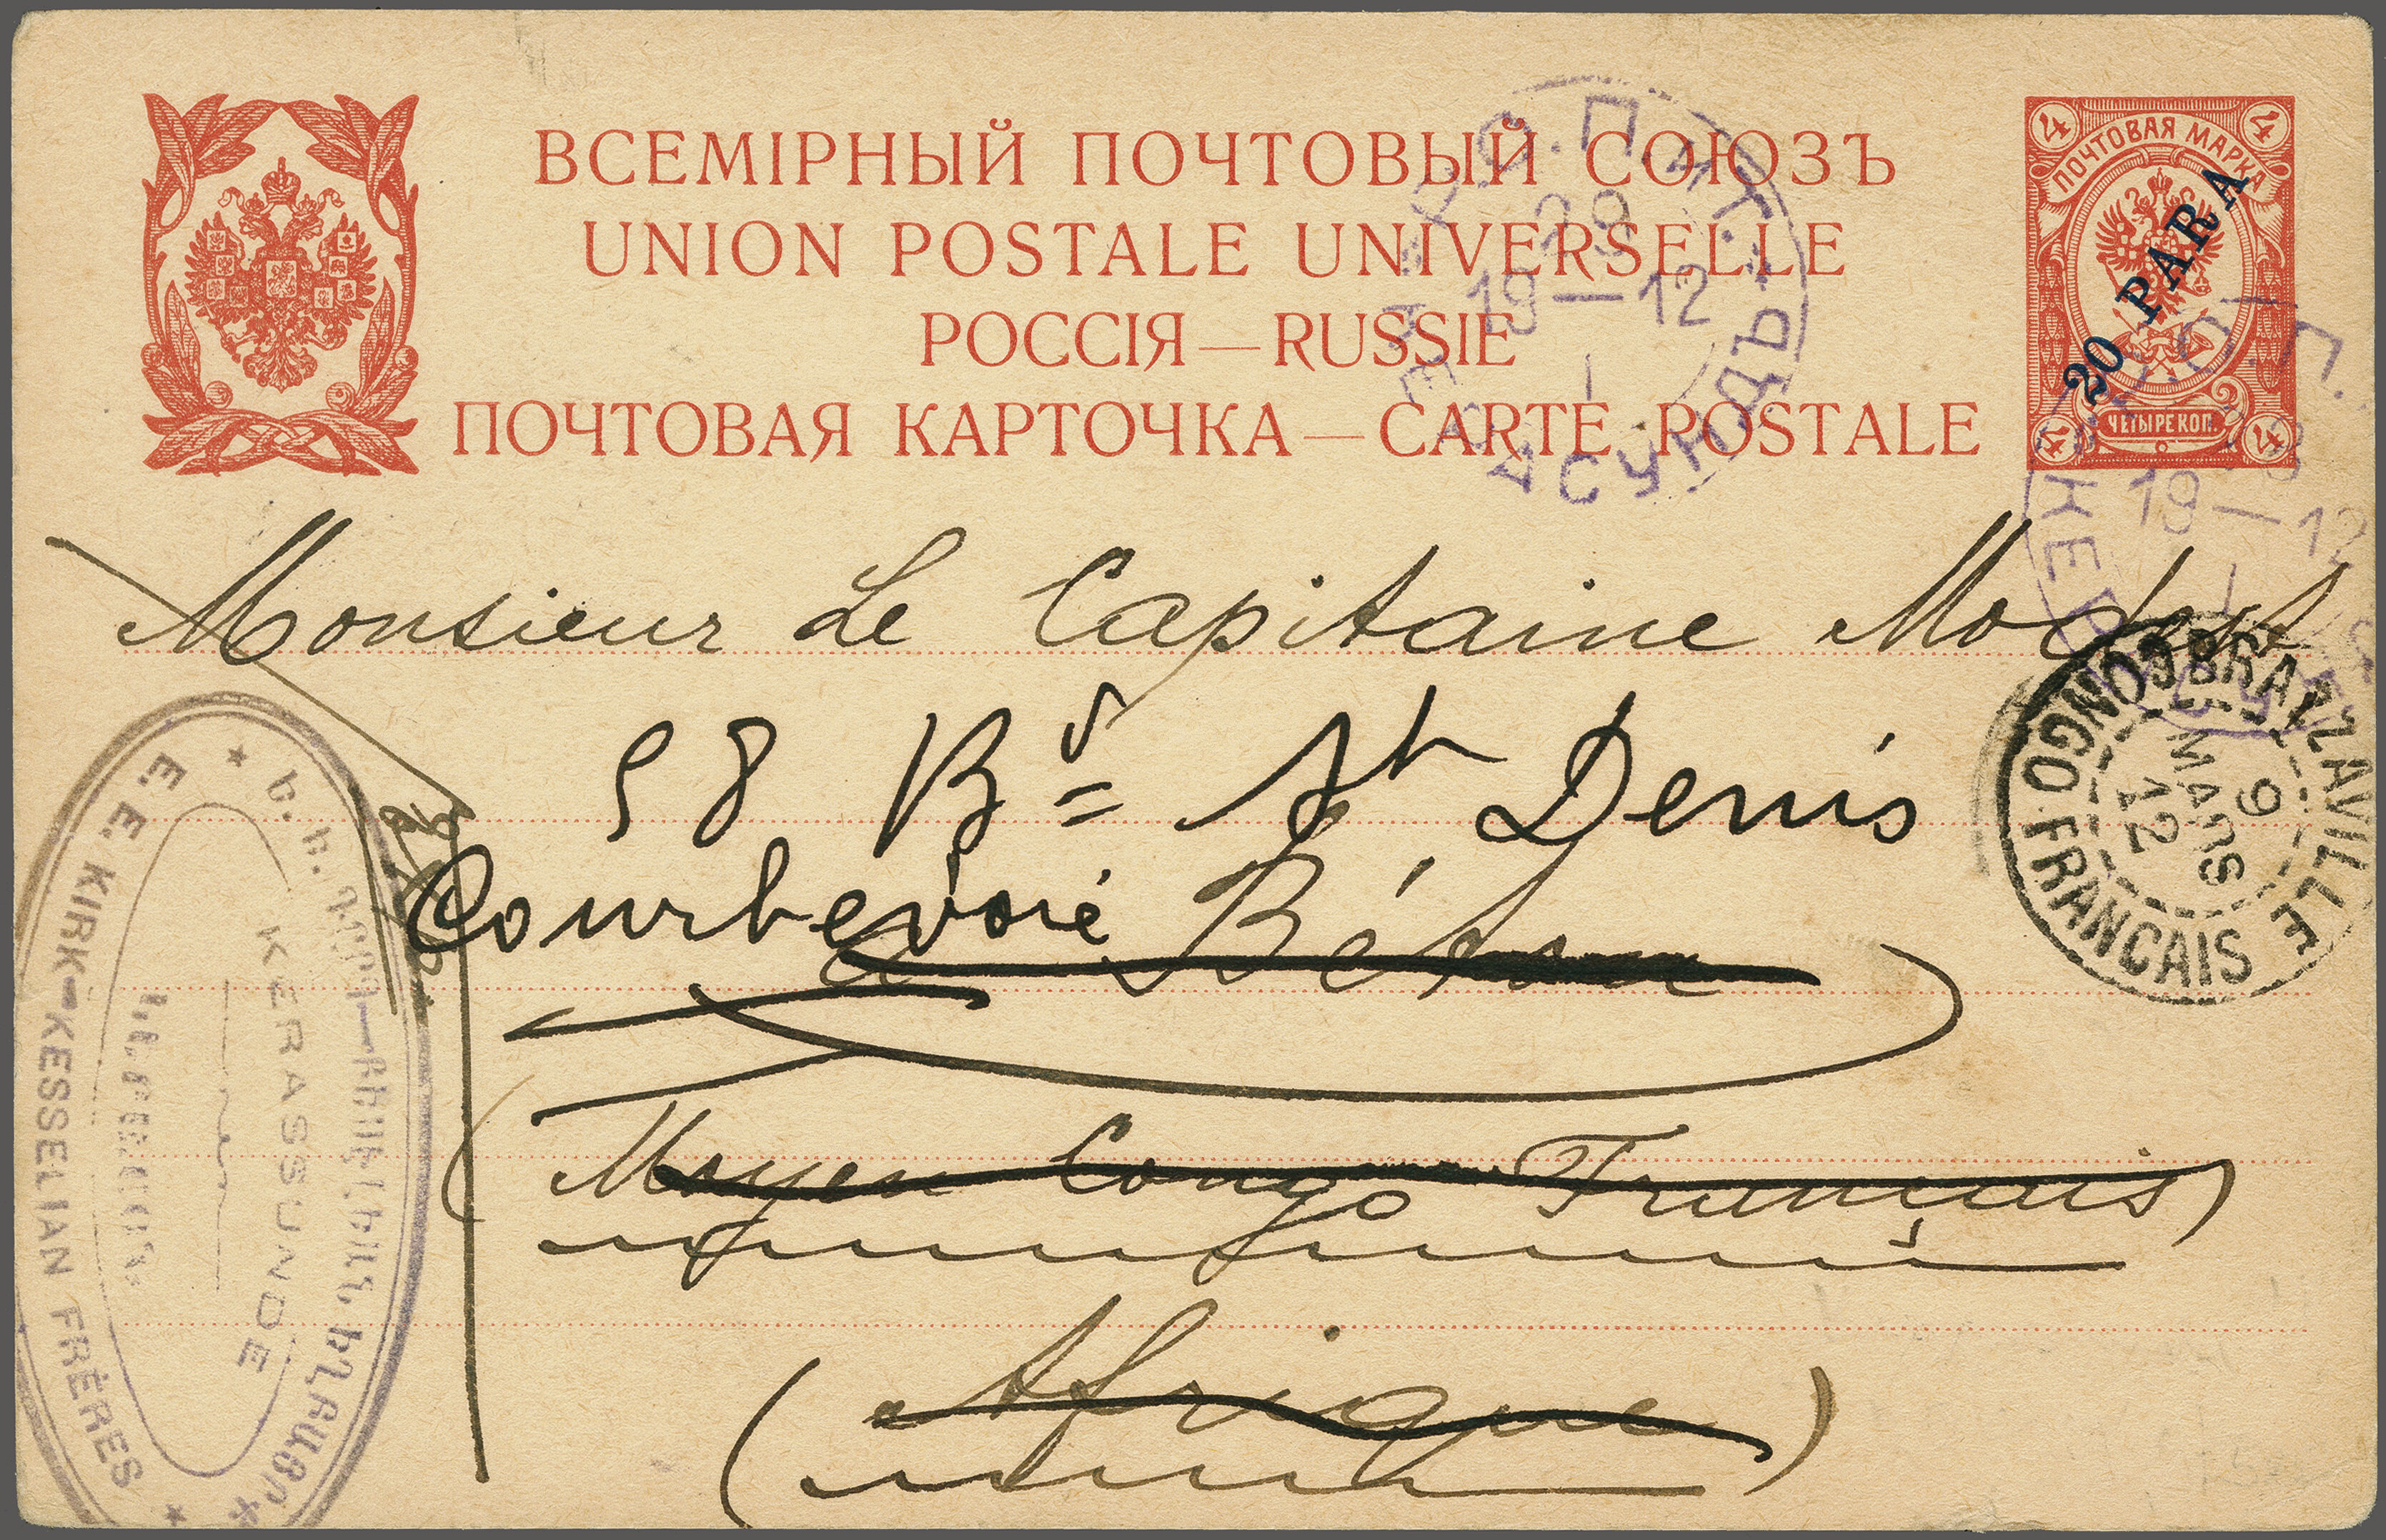 ВСЕМІРНЫЙ ПОЧТОВЫЙ СОЮЗЪ
UNION POSTALE UNIVERSELLE
РОССІЯ — RUSSIE
ПОЧТОВАЯ КАРТОЧКА — CARTE POSTALE
4 4
ПОЧТОВАЯ МАРКА
20 PARA
ЧЕТЫРЕ КОП.
4 4
Р.О.П.и Т.
29
19—12
1
КЕРАСУНДЪ
19—12
1
Monsieur Le Capitaine Modest
58 Bd St Denis
Courbevoie
à Bétou
(Moyen Congo Français)
(Afrique)
BRAZZAVILLE
9
MARS
12
CONGO FRANCAIS
E. E. KIRK–KESSELIAN FRÈRES
KERASSUNDE